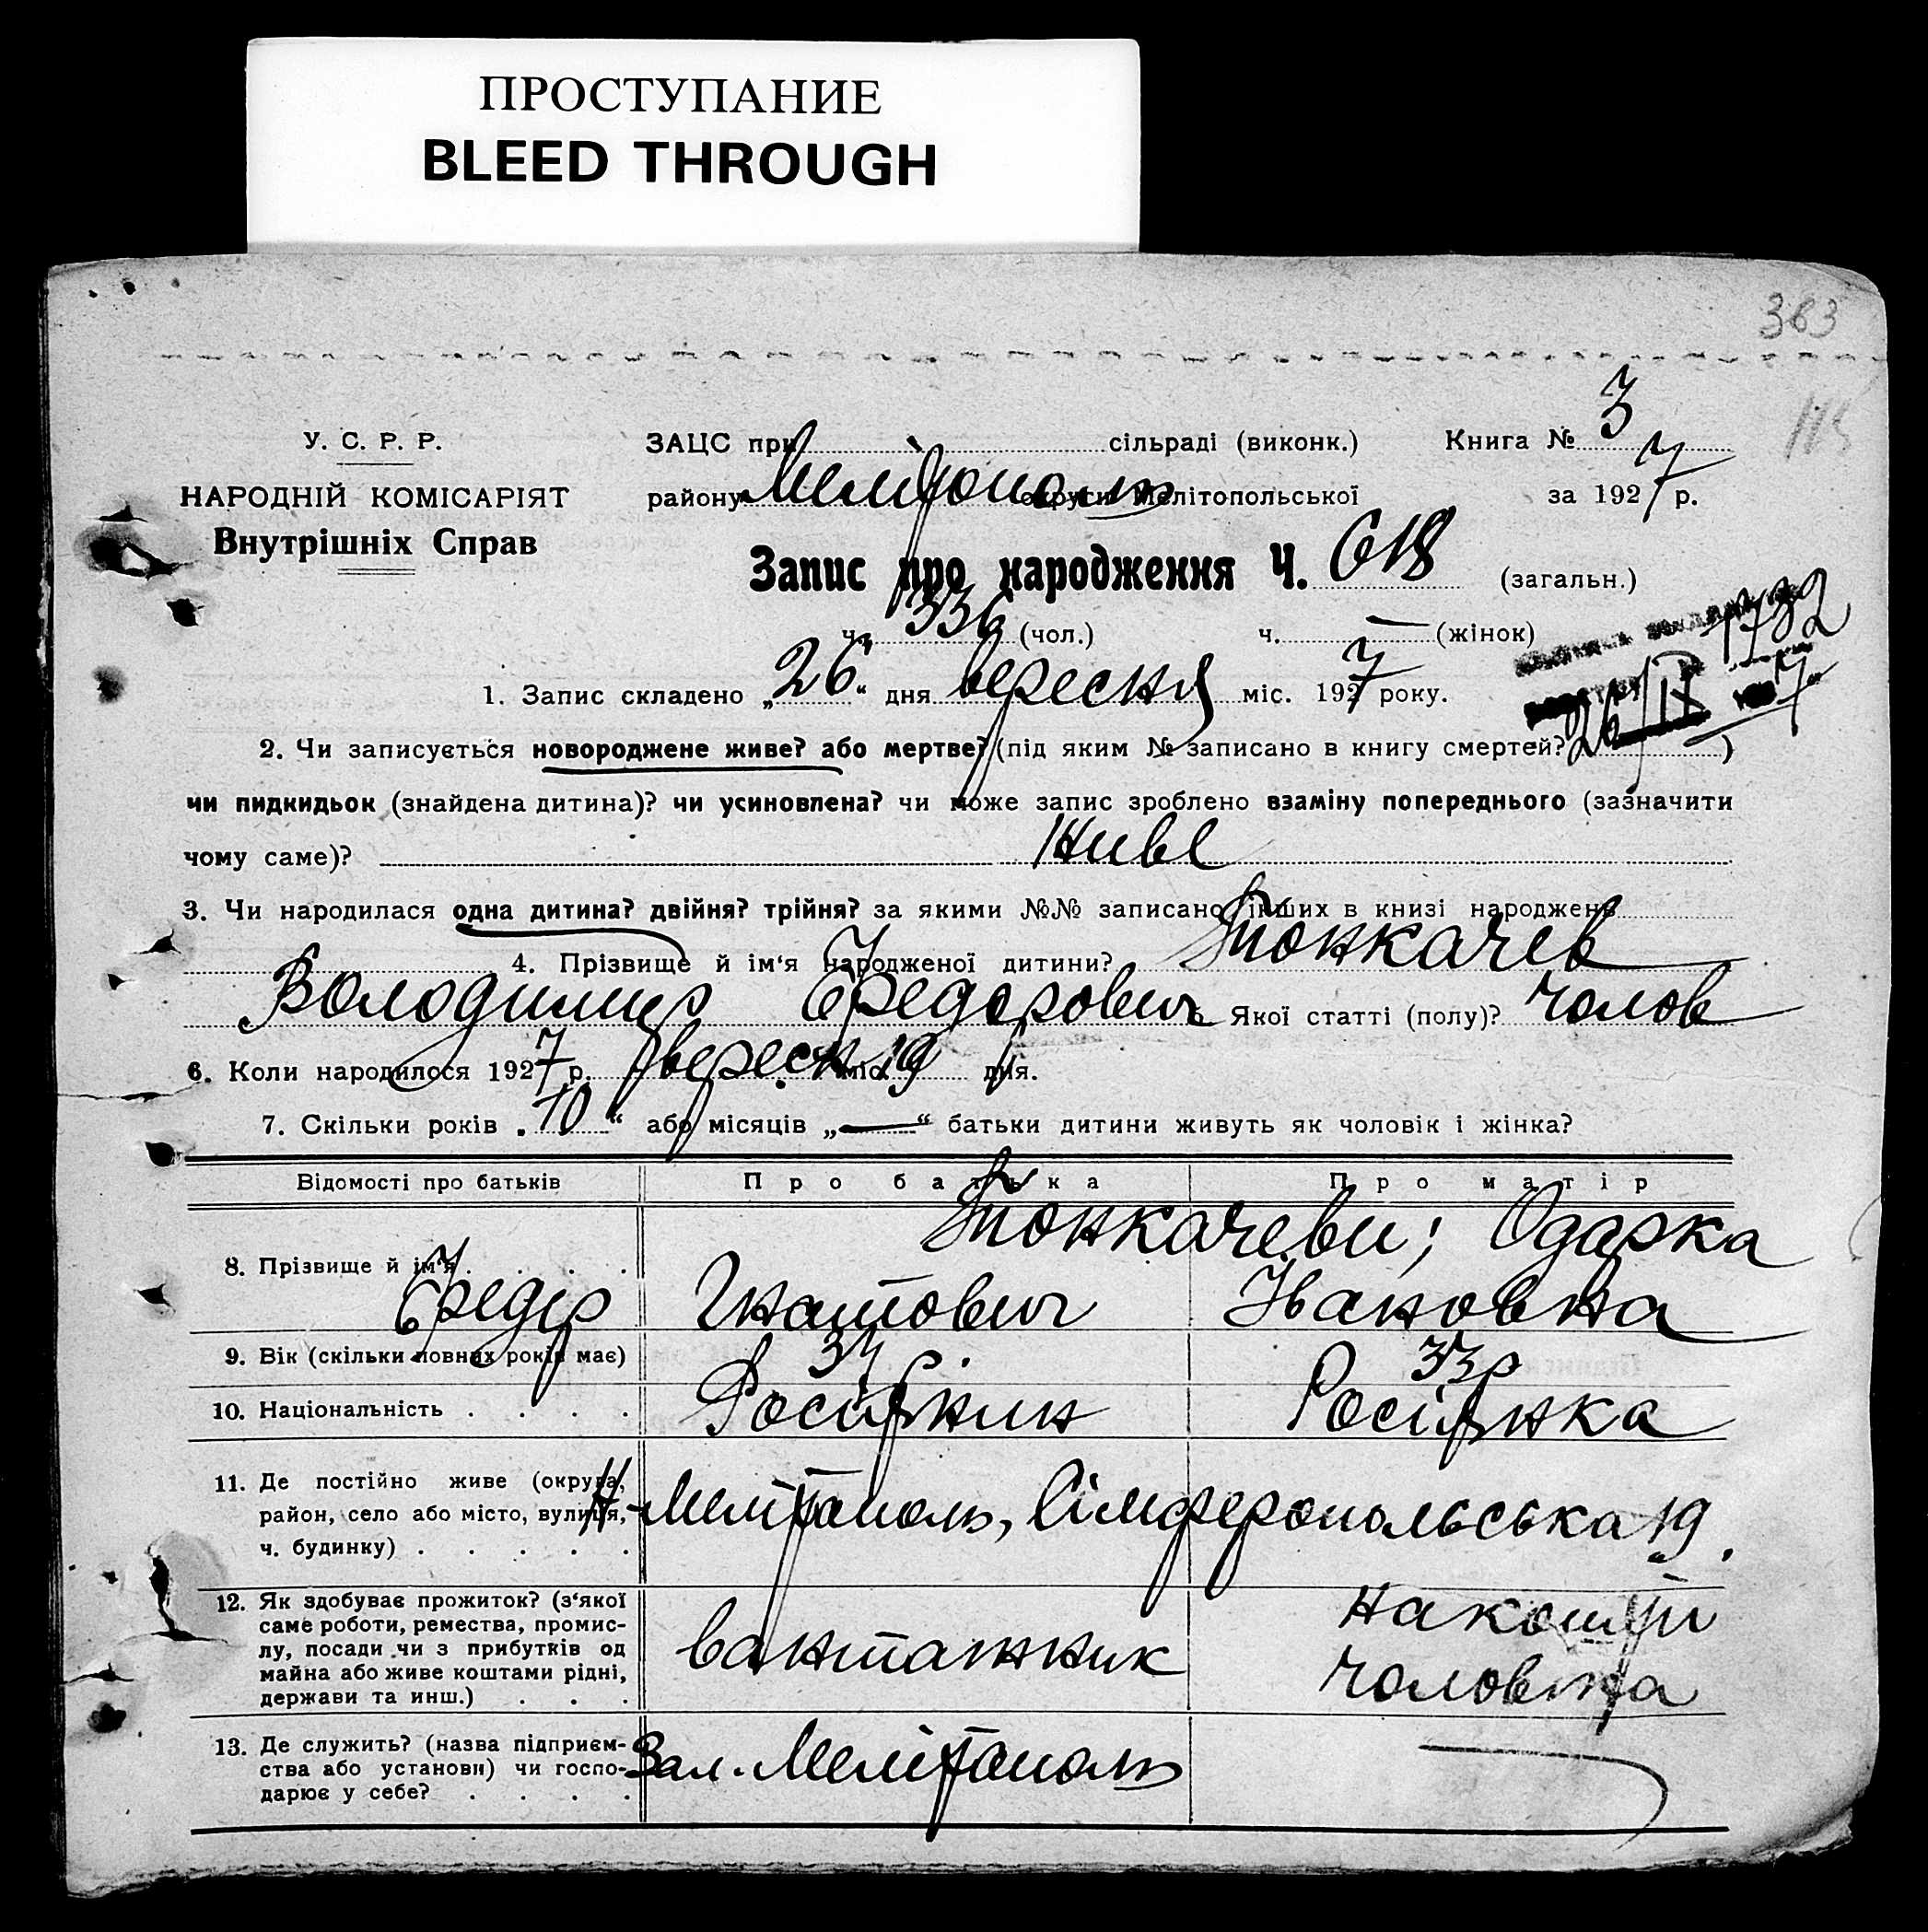 ПРОСТУПАНИЕ
BLEED THROUGH
363
115
У. С. Р. Р.
НАРОДНІЙ КОМІСАРІЯТ
Внутрішніх Справ
ЗАЦС при сільраді (виконк.) Книга № 3
району Мелітополь округи Мелітопольської за 1927 р.
Запис про народження Ч. 618 (загальн.)
ч. 336 (чол.) ч. — (жінок)
1732
26/IX 7
1. Запис складено „26“ дня вересня міс. 1927 року.
2. Чи записується новороджене живе? або мертве? (під яким № записано в книгу смертей? )
чи пидкидьок (знайдена дитина)? чи усиновлена? чи може запис зроблено взаміну попереднього (зазначити
чому саме)? Живе
3. Чи народилася одна дитина? двійня? трійня? за якими №№ записано інших в книзі народжень
4. Прізвище й ім‘я народженої дитини? Тонкачев
Володимир Федорович Якої статті (полу)? чолов
6. Коли народилося 1927 р. вересн міс. 19 дня.
7. Скільки років „10“ або місяців „—“ батьки дитини живуть як чоловік і жінка?
Відомості про батьків Про батька Про матір
8. Прізвище й ім‘я Тонкачеви; Одарка
Федір Гнатович Івановна
9. Вік (скільки повних років має) 34 33р
10. Національність Росіянин Росіянка
11. Де постійно живе (округа,
район, село або місто, вулиця,
ч. будинку)
Н-Мелітополь, Сімферопольська 19.
12. Як здобуває прожиток? (з‘якої
саме роботи, ремества, промис-
лу, посади чи з прибутків од
майна або живе коштами рідні,
держави та инш.)
вантажник
на кошти
чоловіка
13. Де служить? (назва підприєм-
ства або установи) чи госпо-
дарює у себе?
Зал. Мелітополь —